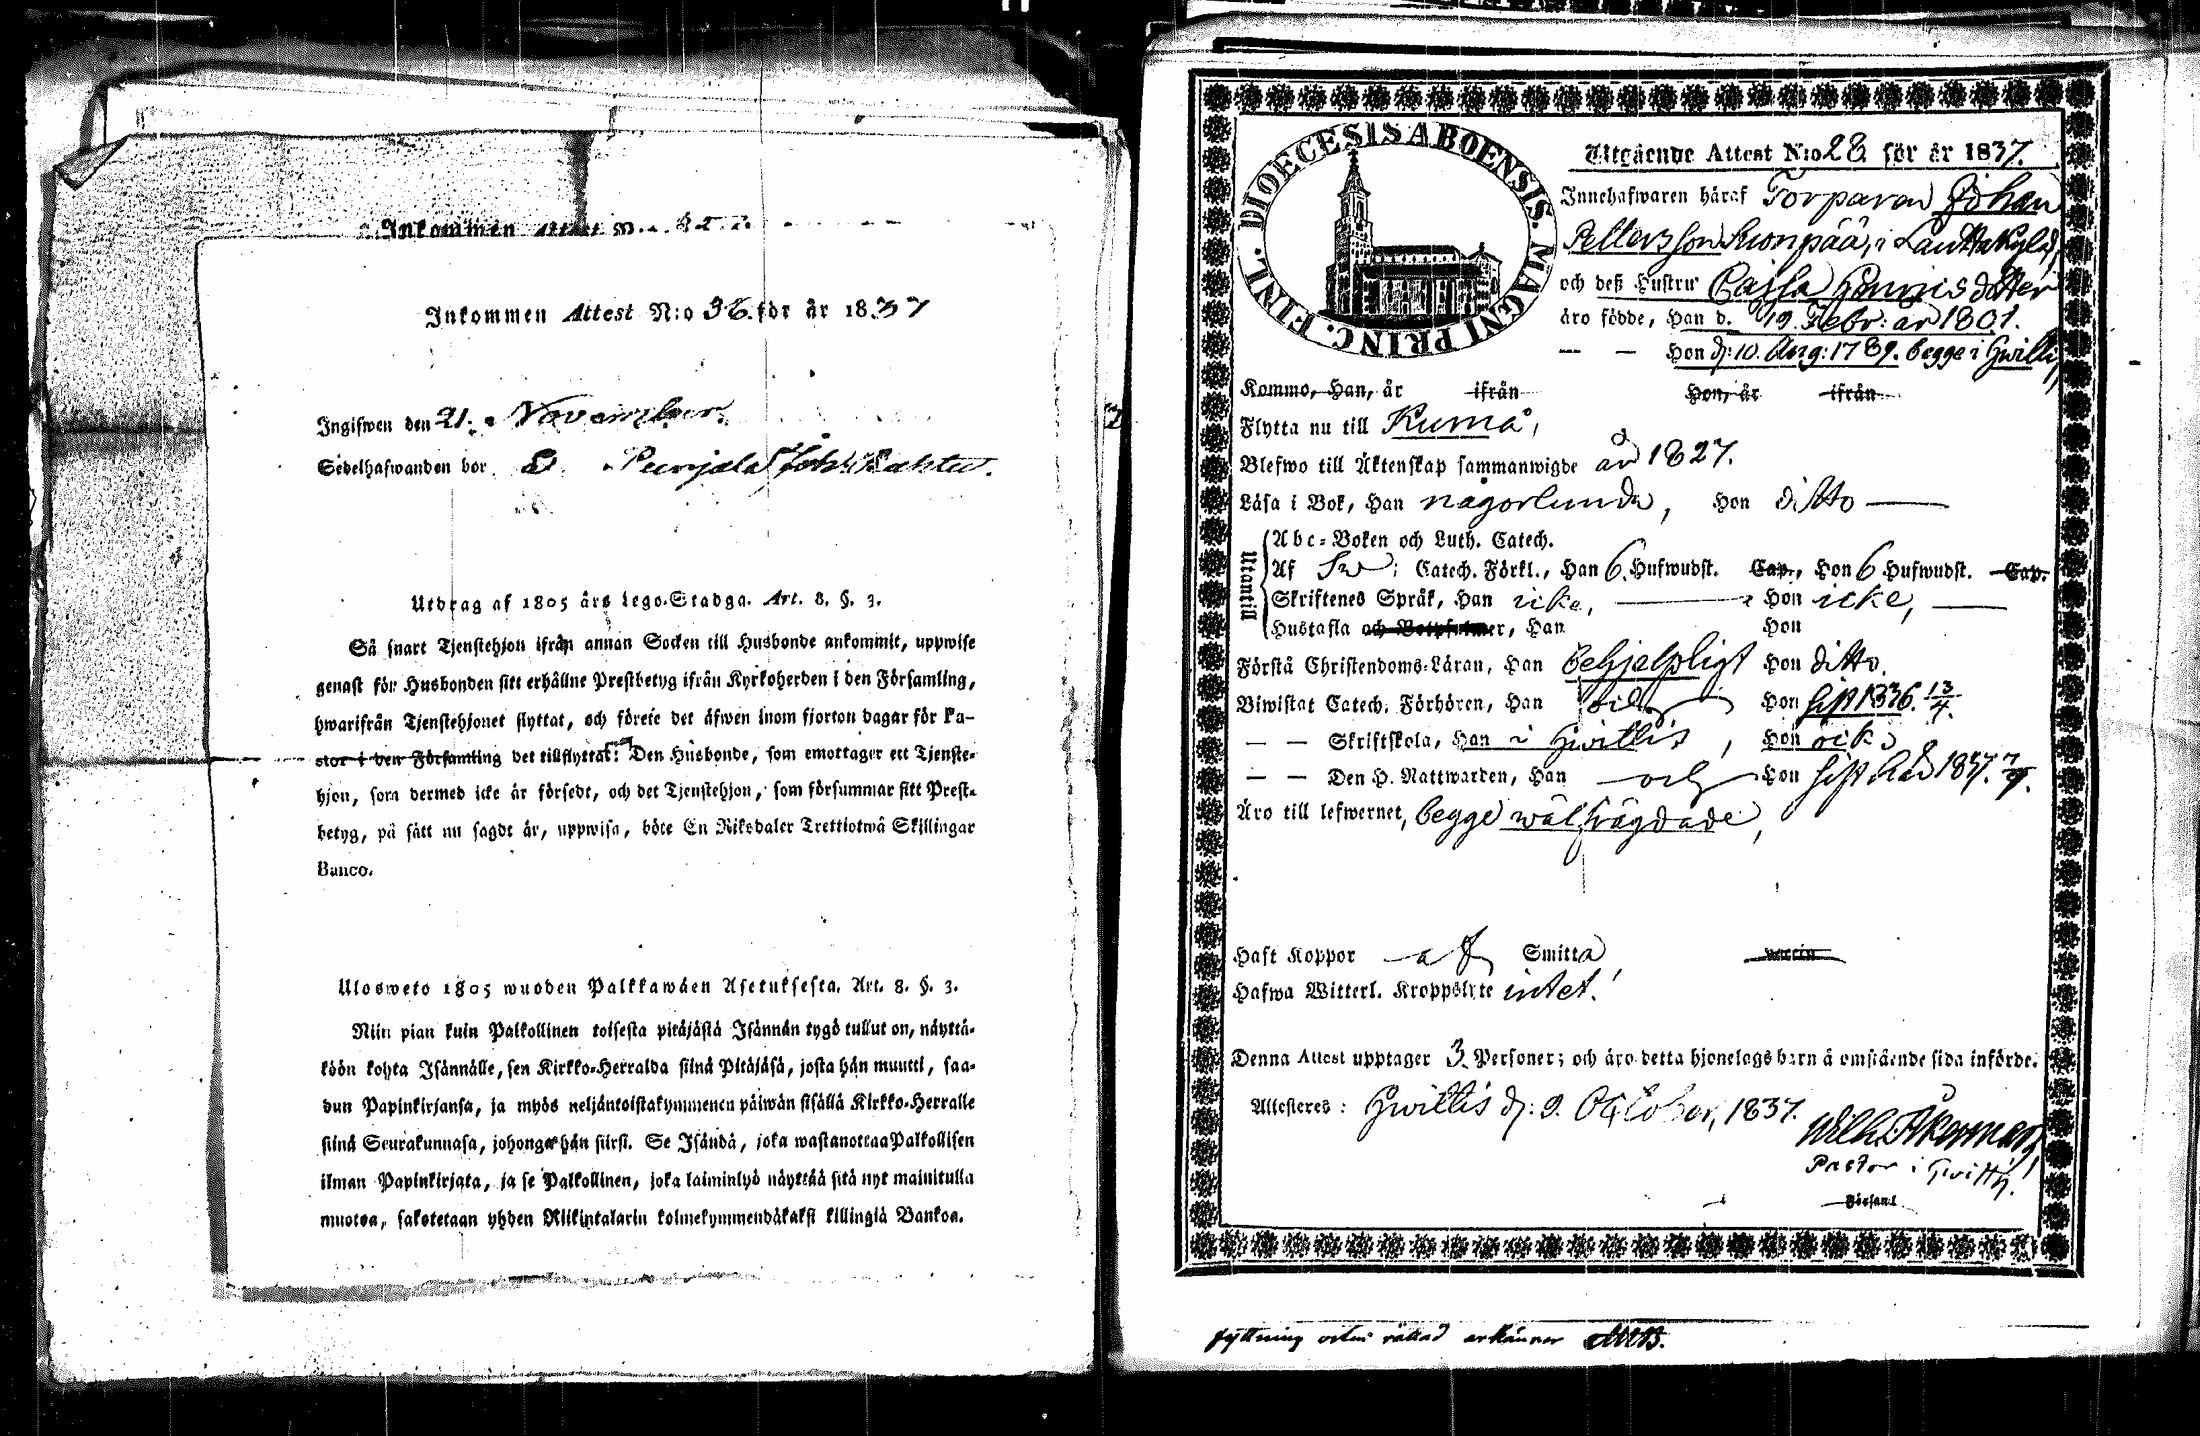 Inkommen Attest
Inkommen Attest N:o 36. för år 1837
Ingifwen den 21. November.
Sedelhafwanden bor
Utdrag af 1805 års Lego-Stadga. Art. 8. §. 3.
Så snart Tjenstehjon ifrån annan Socken till Husbonde ankommit, uppwise
genast för Husbonden sitt erhållne Prestbetyg ifrån Kyrkoherden i den Församling,
hwarifrån Tjenstehjonet flyttat, och föreie det äfwen inom fjorton dagar för Pa-
stor i den Församling det tillflyttat. Den Husbonde, som emottager ett Tjenste-
hjon, som dermed icke är försedt, och det Tjenstehjon, som försummar sitt Prest-
betyg, på sätt nu sagdt är, uppwisa, böte En Riksdaler Trettiotwå Skillingar
Banco.
Ulosweto 1805 wuoden Palkkawäen Asetuksesta. Art. 8. §. 3.
Niin pian kuin Palkollinen toisesta pitäjästä Isännän tygö tullut on, näyttä-
köön kohta Isännälle, sen Kirkko-Herralda siinä Pitäjäsä, josta hän muutti, saa-
dun Papinkirjansa, ja myös neljäntoistakymmenen päiwän sisällä Kirkko-Herralle
siinä Seurakunnasa, johonga hän siirsi. Se Isändä, joka wastanottaa Palkollisen
ilman Papinkirjata, ja se Palkollinen, joka laiminlyö näyttää sitä nyt mainitulla
muotoa, sakotetaan yhden Riikintalarin kolmekymmendäkaksi killingiä Bankoa.
DIOECESIS ABOENSIS. MAGNI PRINC. FINL.
Utgående Attest N:o 28 för år 1837.
Innehafwaren häraf Torparen Johan
Pettersson Kuonpää, i Lauttakylä,
och deß Hustru Caisa Henricsdotter
äro födde, Han d. 19. Febr: år 1801.
— — Hon d: 10. Aug: 1789. begge i Hwittis,
Komme, Han, år ifrån Hon, år ifrån
Flytta nu till Kumå,
Blefwo till Äktenskap sammanwigde år 1827.
Läsa i Bok, Han någorlunda, Hon ditto —
Utantill
Abc-Boken och Luth. Catech.
Af Sw: Catech. Förkl., Han 6 Hufwudst. Cap., Hon 6 Hufwudst. Cap.
Skriftenes Språk, Han icke, — Hon icke, —
Hustafla och Botpsalmer, Han Hon
Förstå Christendoms-Läran, Han behjelpligt Hon ditto.
Biwistat Catech. Förhören, Han och Hon sist 1836. 13/4.
— — Skriftskola, Han i Hwittis, Hon ock
— — Den H. Nattwarden, Han och Hon sist 1837. 7/9.
Äro till lefwernet, begge wälfrägdade,
Haft Koppor af Smitta warin
Hafwa Witterl. Kroppslyte intet.
Denna Attest upptager 3. Personer; och äro detta hjonelags barn å omstående sida införde.
Attesteres: Hwittis d: 9. October, 1837.
Wilh. Åkerman,
Pastor i Hwittis.
Församl
flyttning orten rättad erkänner